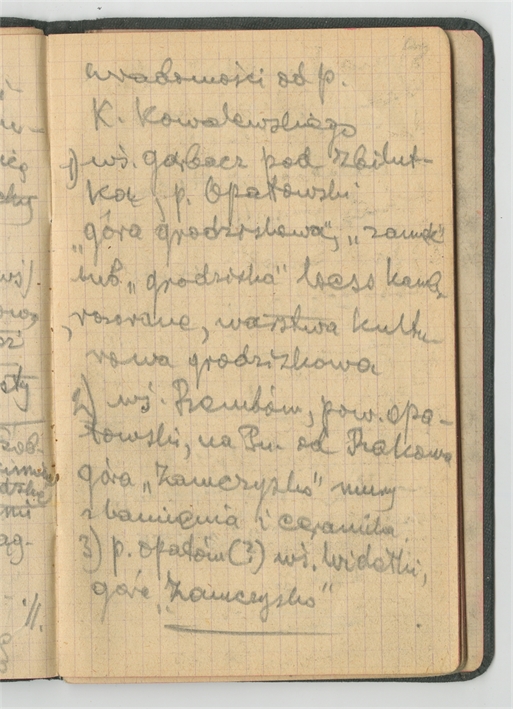 wiadomości od p.
K. Kowalewskiego
1) wś. Garbacz pod Zbilut-
ką, p. Opatowski
„góra grodziskowa”, „zamek”
lub „grodzisko” loess
rozorane, warstwa kultu-
rowa grodziskowa
2) wś. Rembów, pow. opa-
towski, na Pn. od Rakowa
góra „Zamczysko” mury
z kamienia i ceramika.
3) p. opatów(?) wś. Widełki,
góra „Zamczysko”